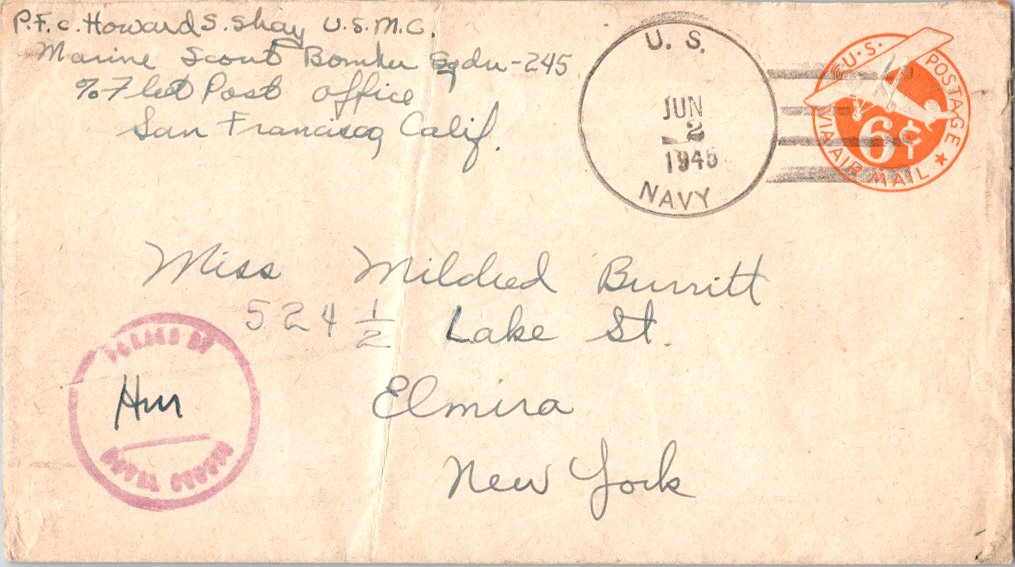 P.F.c. Howard S. Shay U.S.M.C.
Marine Scout Bomber Sqdn-245
% Fleet Post Office
San Francisco Calif.
U. S.
JUN
2
1945
NAVY
U.S. POSTAGE
6¢
VIA AIR MAIL
Miss Mildred Burritt
524 1/2 Lake St.
Elmira
New York
PASSED BY
NAVAL CENSOR